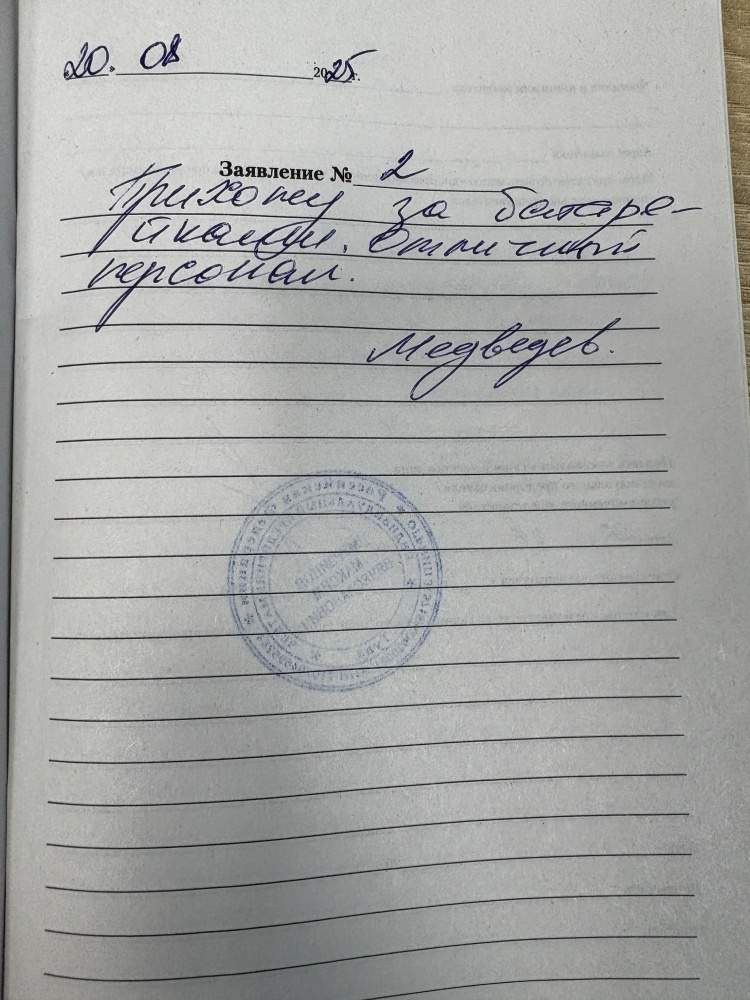 20. 08 2025г.
Заявление № 2
Прихожу за батаре-
йками. Отличный
персонал.
Медведев.